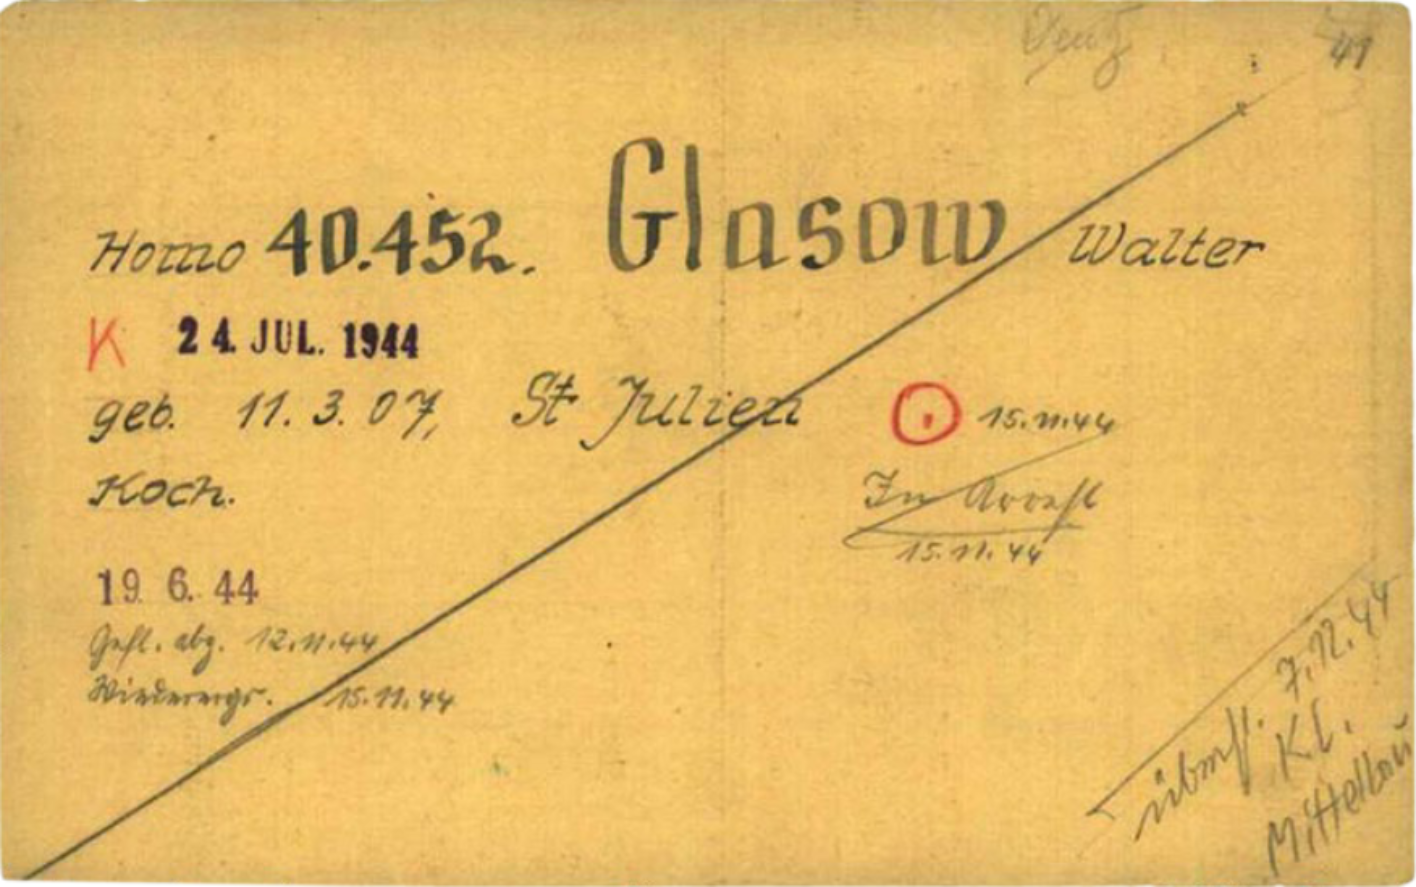 41
Homo 40.452. Glasow Walter
K 24. JUL. 1944
geb. 11. 3. 07, St Julien
15.11.44
Koch.
In Arrest
15.11.44
19. 6. 44
Gefl. abg. 12.11.44
Wiederergr. 15.11.44
7.12.44
überst. KL.
Mittelbau